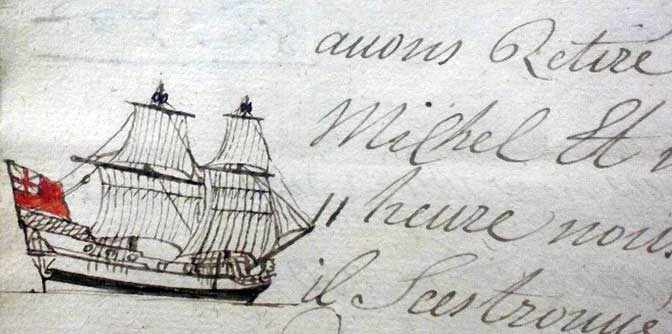 auons Retire
Michel Et
11 heure nous
il Scestrouue